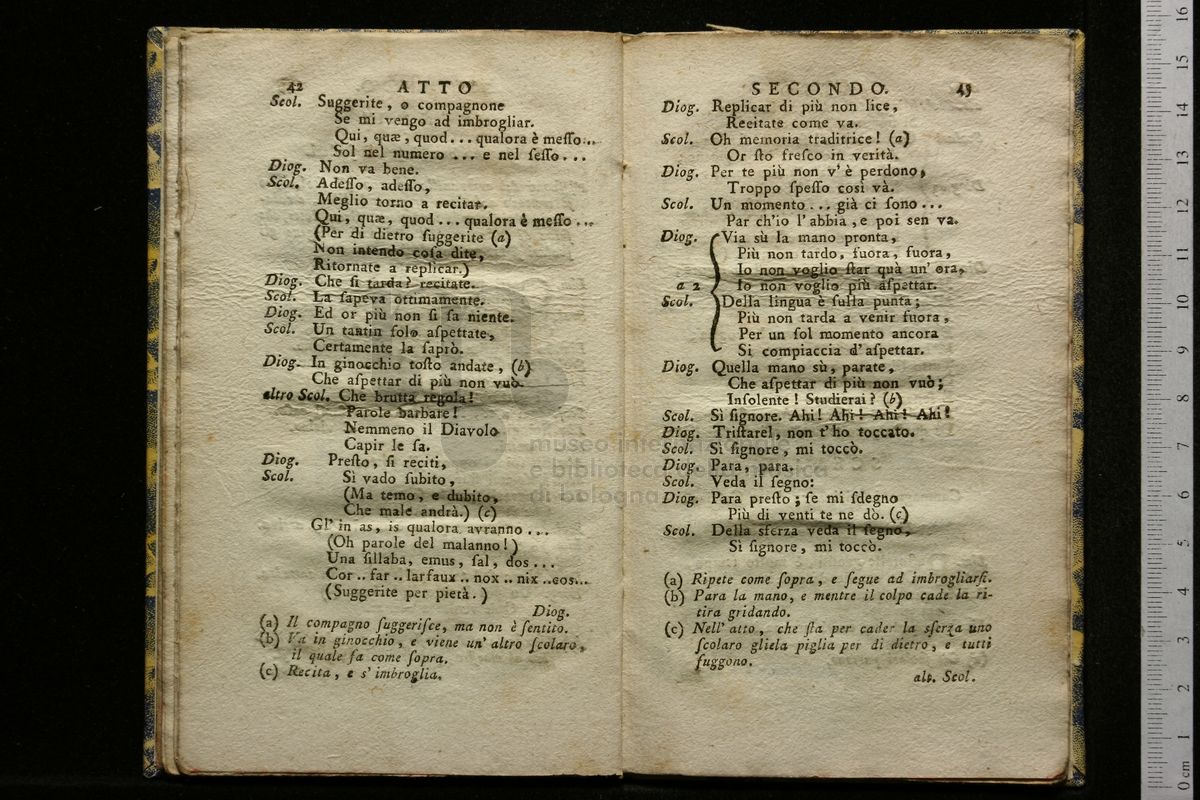 42 ATTO
Scol. Suggerite, o compagnone
Se mi vengo ad imbrogliar.
Qui, quæ, quod... qualora è meſſo...
Sol nel numero ... e nel ſeſſo...
Diog. Non va bene.
Scol. Adeſſo, adeſſo,
Meglio torno a recitar.
Qui, quæ, quod... qualora è meſſo ...
(Per di dietro ſuggerite (a)
Non intendo coſa dite,
Ritornate a replicar.)
Diog. Che ſi tarda? recitate.
Scol. La ſapeva ottimamente.
Diog. Ed or più non ſi ſa niente.
Scol. Un tantin ſolo aſpettate,
Certamente la ſaprò.
Diog. In ginocchio toſto andate, (b)
Che aſpettar di più non vuò.
altro Scol. Che brutta regola!
Parole barbare!
Nemmeno il Diavolo
Capir le ſa.
Diog. Preſto, ſi reciti,
Scol. Sì vado ſubito,
(Ma temo, e dubito,
Che male andrà.) (c)
Gl' in as, is qualora avranno ...
(Oh parole del malanno!)
Una ſillaba, emus, ſal, dos...
Cor.. far .. larfaux .. nox .. nix ..cos...
(Suggerite per pietà.)
Diog.
(a) Il compagno ſuggeriſce, ma non è ſentito.
(b) Va in ginocchio, e viene un' altro ſcolaro,
il quale fa come ſopra.
(c) Recita, e s' imbroglia.
SECONDO. 43
Diog. Replicar di più non lice,
Recitate come va.
Scol. Oh memoria traditrice! (a)
Or ſto freſco in verità.
Diog. Per te più non v' è perdono,
Troppo ſpeſſo così và.
Scol. Un momento... già ci ſono...
Par ch'io l' abbia, e poi sen va.
Diog. Via sù la mano pronta,
Più non tardo, fuora, fuora,
Io non voglio ſtar quà un' ora,
a 2 Io non voglio più aſpettar.
Scol. Della lingua è ſulla punta;
Più non tarda a venir fuora,
Per un ſol momento ancora
Si compiaccia d' aſpettar.
Diog. Quella mano sù, parate,
Che aſpettar di più non vuò;
Inſolente! Studierai? (b)
Scol. Sì ſignore. Ahi! Ahi! Ahi! Ahi!
Diog. Triſtarel, non t' ho toccato.
Scol. Sì ſignore, mi toccò.
Diog. Para, para.
Scol. Veda il ſegno:
Diog. Para preſto; ſe mi ſdegno
Più di venti te ne dò. (c)
Scol. Della sferza veda il ſegno,
Sì ſignore, mi toccò.
(a) Ripete come ſopra, e ſegue ad imbrogliarſi.
(b) Para la mano, e mentre il colpo cade la ri-
tira gridando.
(c) Nell' atto, che ſta per cader la sferza uno
ſcolaro gliela piglia per di dietro, e tutti
fuggono.
alt. Scol.
museo internazionale
e biblioteca della musica
di bologna
0 cm 1 2 3 4 5 6 7 8 9 10 11 12 13 14 15 16